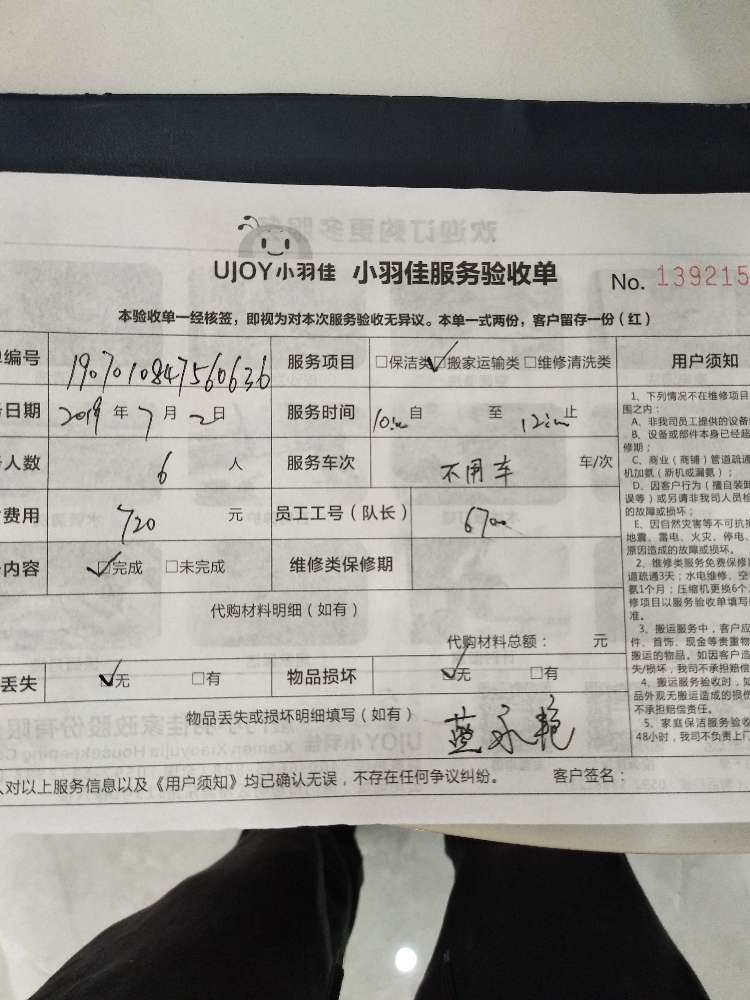 欢迎订购更多服
UJOY小羽佳 小羽佳服务验收单 No. 139215
本验收单一经核签，即视为对本次服务验收无异议。本单一式两份，客户留存一份（红）
编号 190701084756063b 服务项目 □保洁类 ☑搬家运输类 □维修清洗类 用户须知
日期 2019 年 7 月 2 日 服务时间 自 至 止
人数 6 人 服务车次 不用车 车/次
费用 720 元 员工工号（队长） 6700
内容 ☑完成 □未完成 维修类保修期
代购材料明细（如有）
代购材料总额： 元
丢失 ☑无 □有 物品损坏 ☑无 □有
物品丢失或损坏明细填写（如有） 蓝永艳
对以上服务信息以及《用户须知》均已确认无误，不存在任何争议纠纷。 客户签名：
1、下列情况不在维修项目
围之内：
A、非我司员工提供的设备
B、设备或部件本身已经超
修期；
C、商业（商铺）管道疏通
机加氨（新机或漏氨）；
D、因客户行为（擅自装卸
误等）或另请非我司人员检
的故障或损坏；
E、因自然灾害等不可抗
地震、雷电、火灾、停电、
原因造成的故障或损坏。
2、维修类服务免费保修
道疏通3天；水电维修、空
氨1个月；压缩机更换6个
修项目以服务验收单填写
准。
3、搬运服务中，客户应
件、首饰、现金等贵重物
搬运的物品。如因客户造
失/损坏，我司不承担赔偿
4、搬运服务验收时，如
品外观无搬运造成的损伤
不承担赔偿责任。
5、家庭保洁服务验收
48小时，我司不负责上门